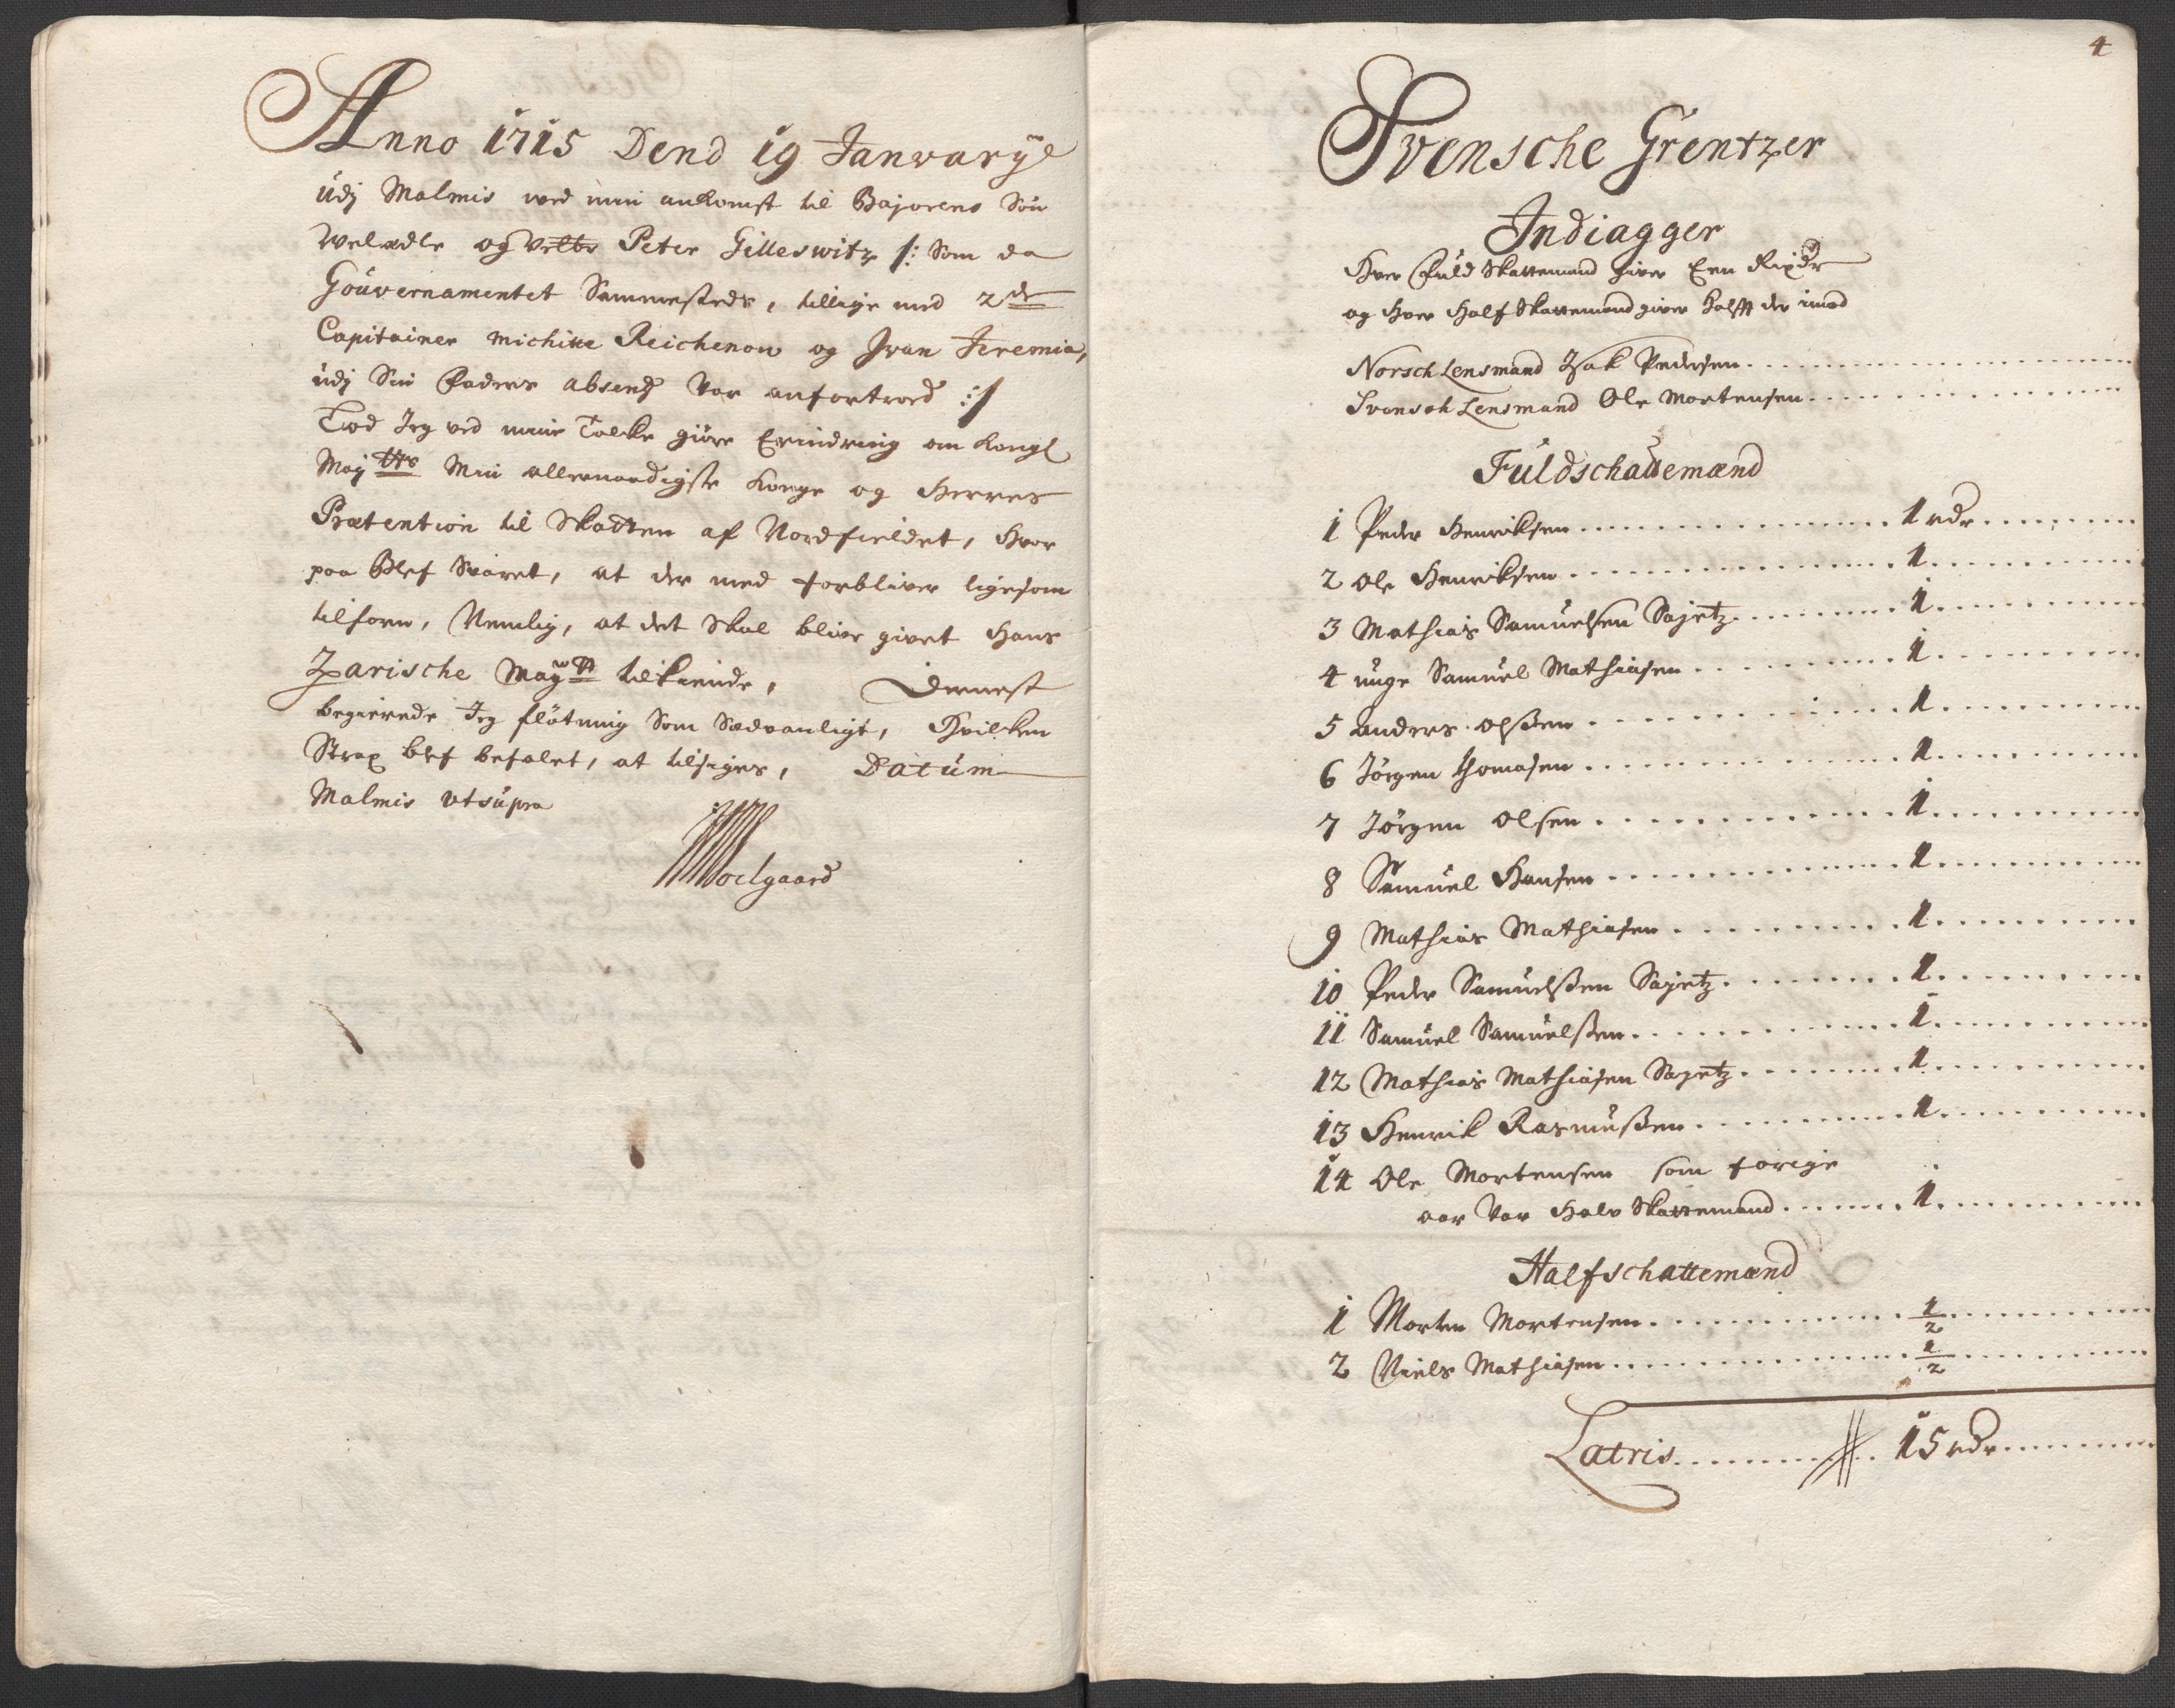 Anno 1715 Dend 19 Janvarÿ
udj Malmis ved min ankomst til Bajorens Søn
Welædle og Velbr Peter Gilleswitz /: Som da
Gouvernamentet Sammesteds, tillige med 2de
Capitainer Michitte Reichenow og Jvan Jeremia,
udj Sin Faders absentz var anfortroed :/
Lod Jeg ved min Tolke giøre Erindring om Kongl
Maÿtts Min allernaadigste Konge og Herres
Prætention til Skatten af Nordfieldet, hvor
paa blef Svaret, at der med forbliver ligesom
tilforn, Nemlig, at det Skal blive givet Hans
Zarische Maÿtt tilkiende, Dernest
begierede Jeg fløtning Som Sædvanligt, Hvilken
Strax blef befalet, at tilsiges, Datum
Malmis utsupra
Soelgaard
4
Svensche Grentzer
Indiagger
Hver Fuld Skattemand giver Een Rixdr
og Hver Half Skattemand giver halfft der imod
Norsch Lensmand Isak Pedersen
Svensch Lensmand Ole Mortensen
Fuldschattemænd
1 Peder Henriksen 1 rdr
2 Ole Henriksen 1
3 Mathias Samuelsen Sajetz 1
4 unge Samuel Mathiasen 1
5 Anders Olssen 1
6 Jörgen Thomasen 1
7 Jörgen Olsen 1
8 Samuel Hansen 1
9 Mathias Mathiasen 1
10 Peder Samuelssen Sajetz 1
11 Samuel Samuelssen 1
12 Mathias Mathiasen Sajetz 1
13 Henrik Rasmussen 1
14 Ole Mortensen som forige
aar var Halv Skattemand 1
Halfschattemænd
1 Morten Mortensen 1/2
2 Niels Mathiasen 1/2
Latris 15 rdr